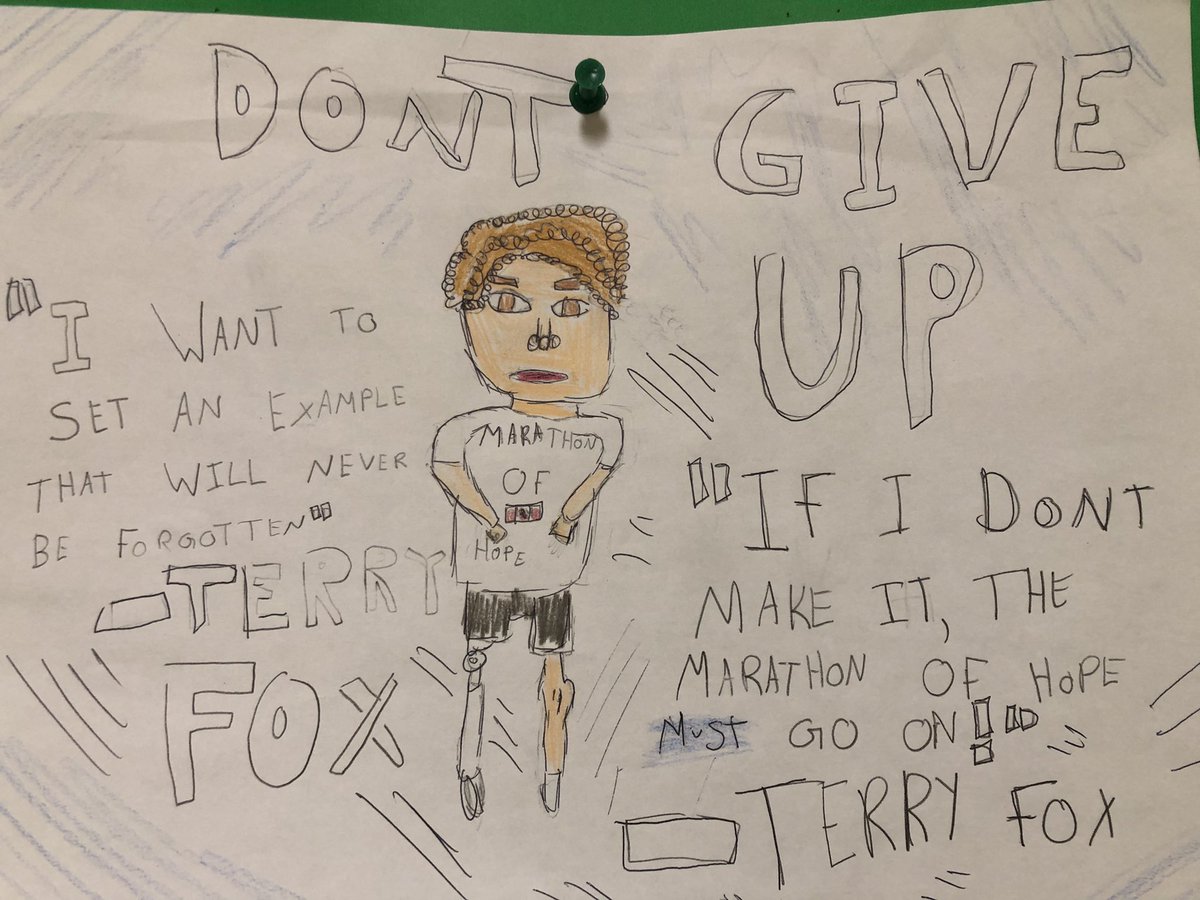 DONT GIVE
UP
"I WANT TO
SET AN EXAMPLE
THAT WILL NEVER
BE FORGOTTEN"
-TERRY
FOX
MARATHON
OF
HOPE
"IF I DONT
MAKE IT, THE
MARATHON OF HOPE
MUST GO ON!"
-TERRY FOX